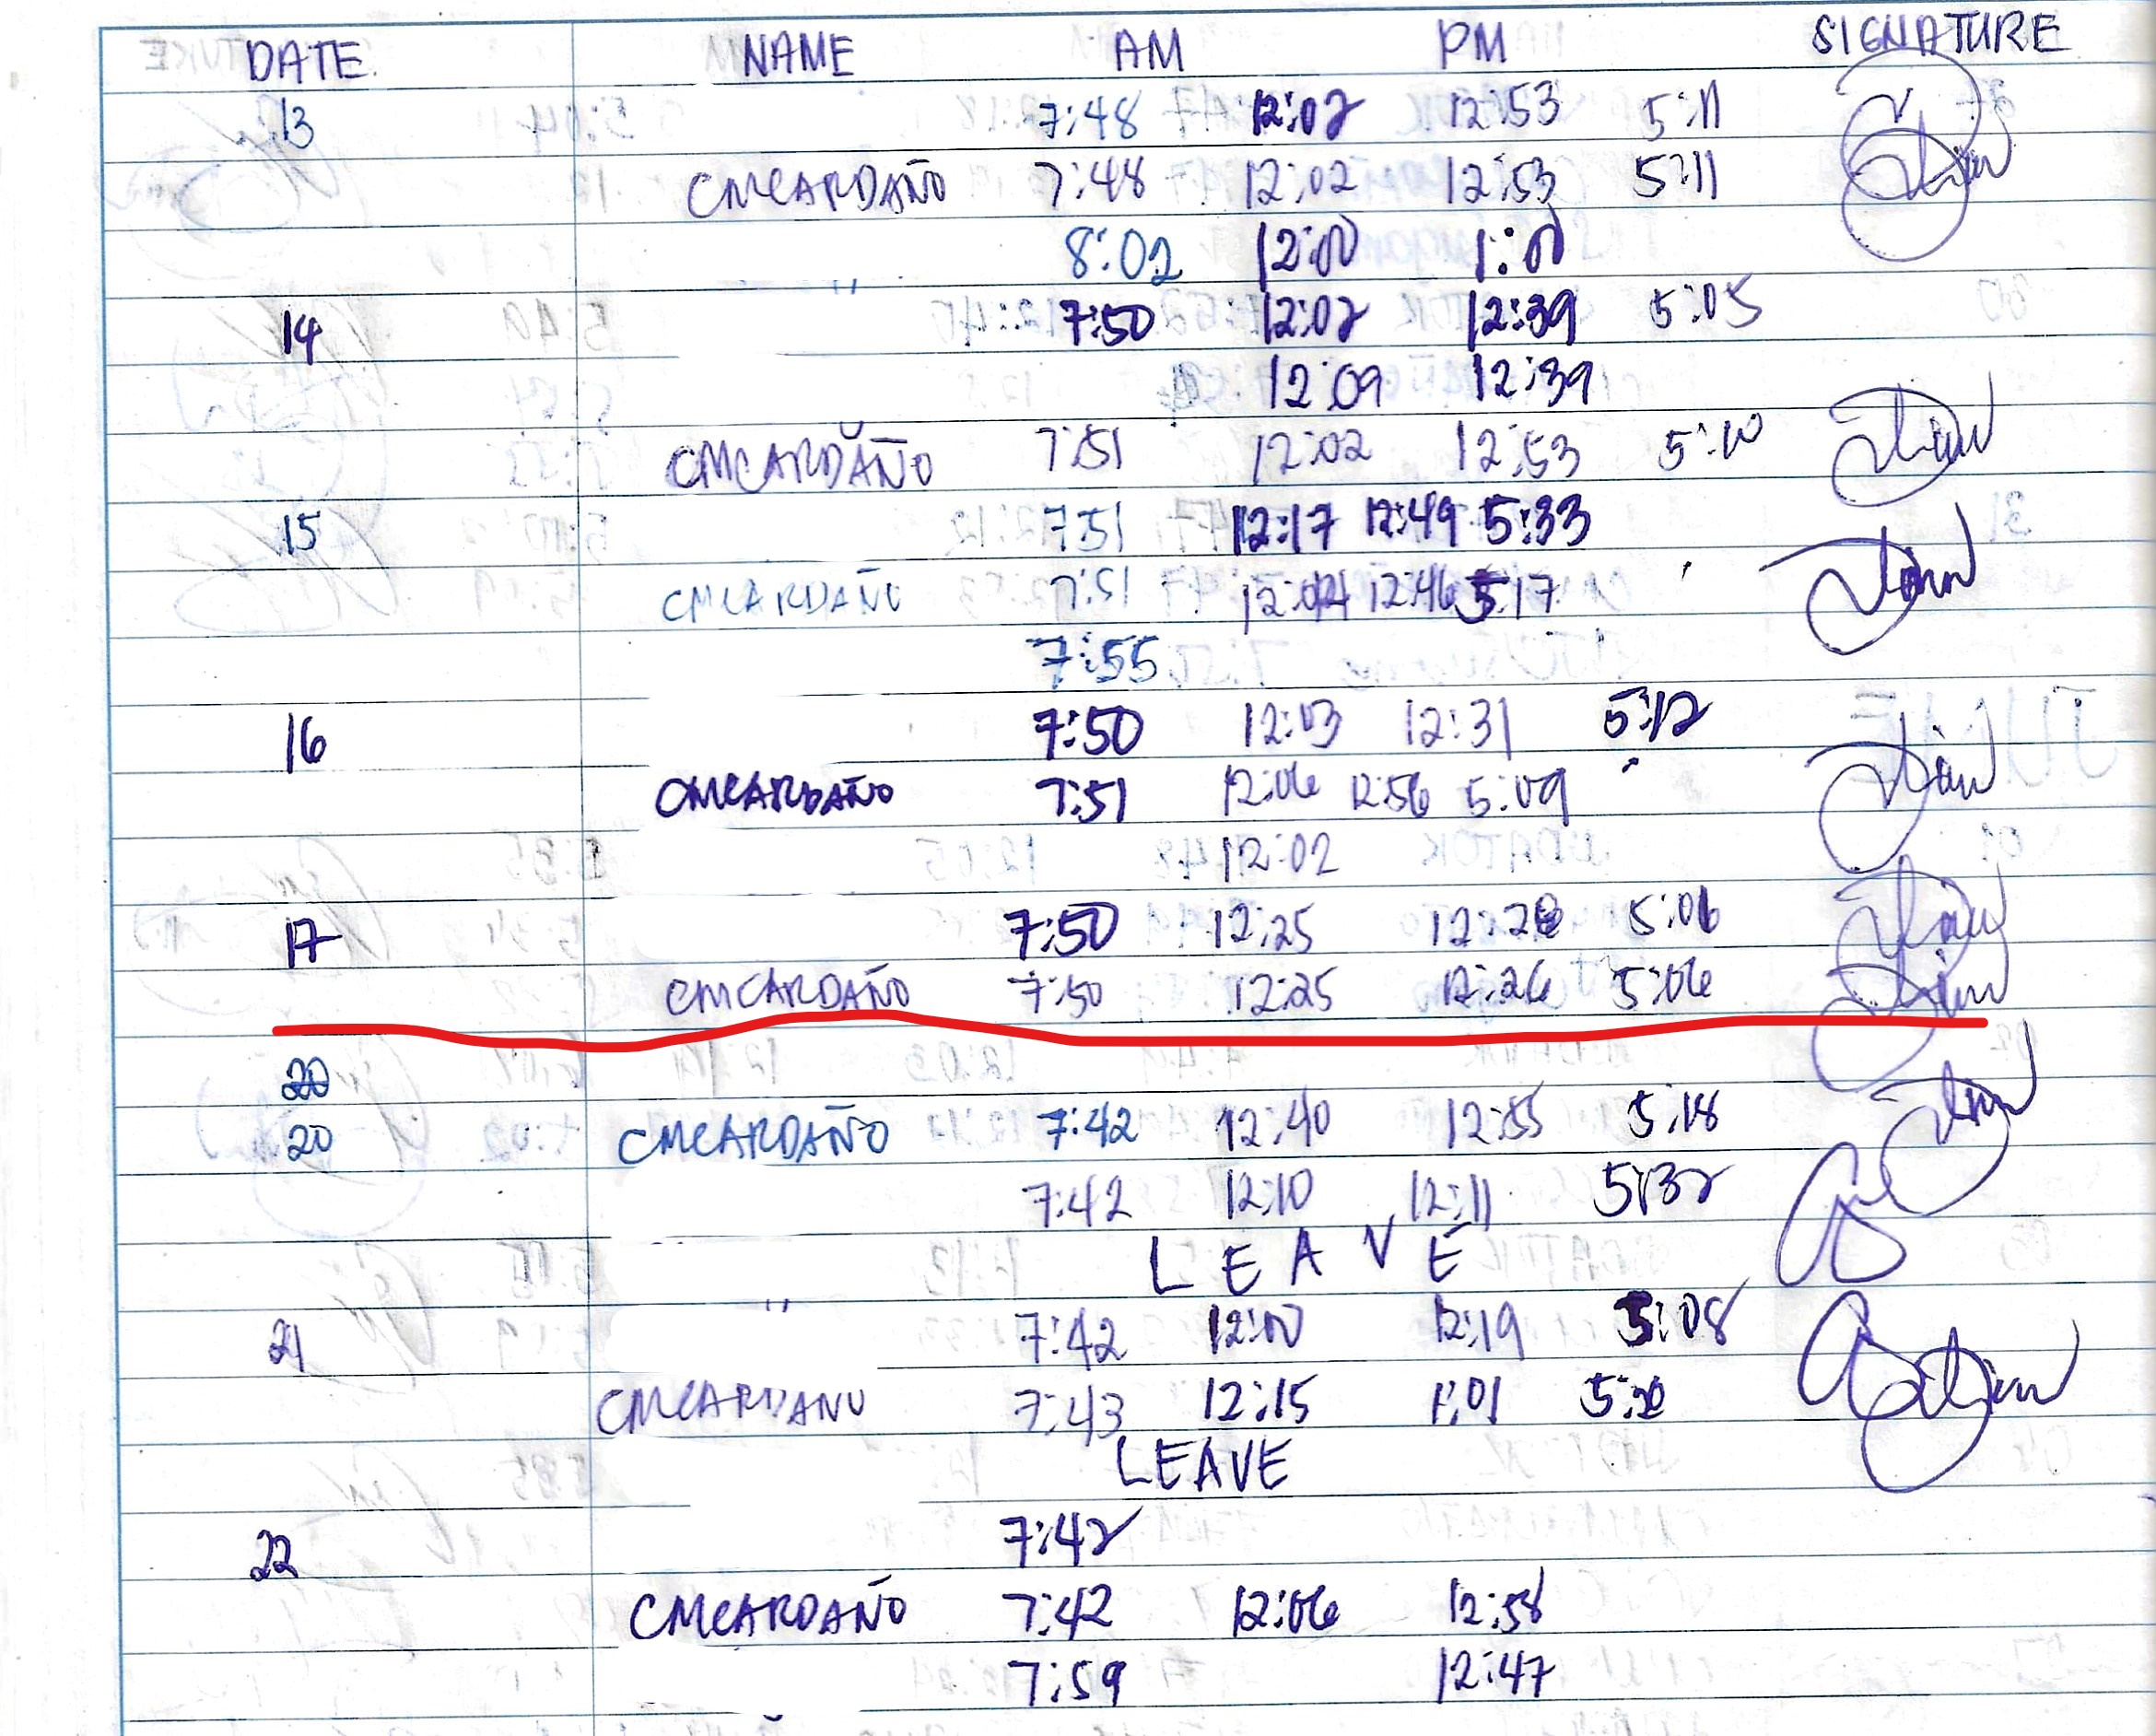 DATE NAME AM PM SIGNATURE
13 7:48 12:02 12:53 5:11
CMCARDAÑO 7:48 12:02 12:53 5:11
" 8:02 12:00 1:00
14 7:50 12:02 12:39 5:05
12:09 12:39
CMCARDAÑO 7:51 12:02 12:53 5:10
15 7:51 12:17 12:49 5:33
CMCARDAÑO 7:51 12:46 5:17
7:55
16 7:50 12:03 12:31 5:12
CMCARDAÑO 7:51 12:06 12:56 5:09
12:02
17 7:50 12:25 5:06
CMCARDAÑO 7:50 12:25 12:26 5:06
20
20 CMCARDAÑO 7:42 12:40 12:55 5:18
7:42 12:10 12:11 5:32
LEAVE
"
21 7:42 12:00 12:19 5:08
CMCARDANO 7:43 12:15 1:01
LEAVE
22 7:42
CMCARDAÑO 7:42 12:06 12:58
7:59 12:47